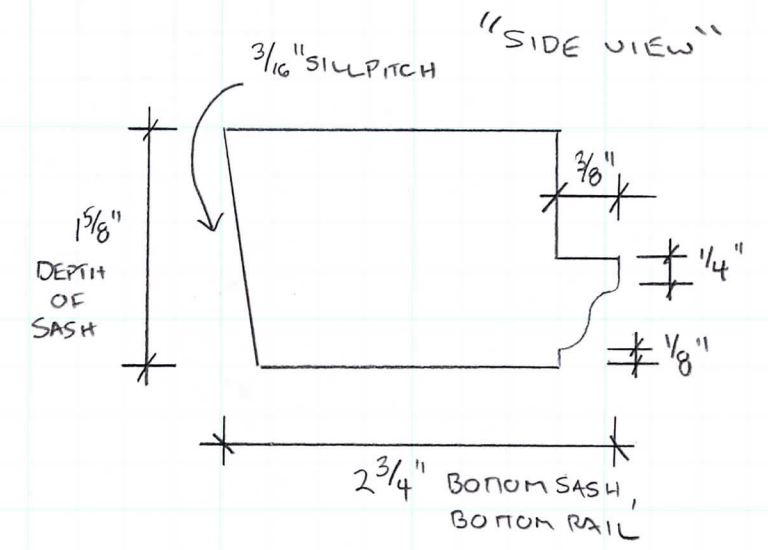 "SIDE VIEW"
3/16" SILL PITCH
3/8"
1 5/8"
DEPTH
OF
SASH
1/4"
1/8"
2 3/4" BOTTOM SASH,
BOTTOM RAIL